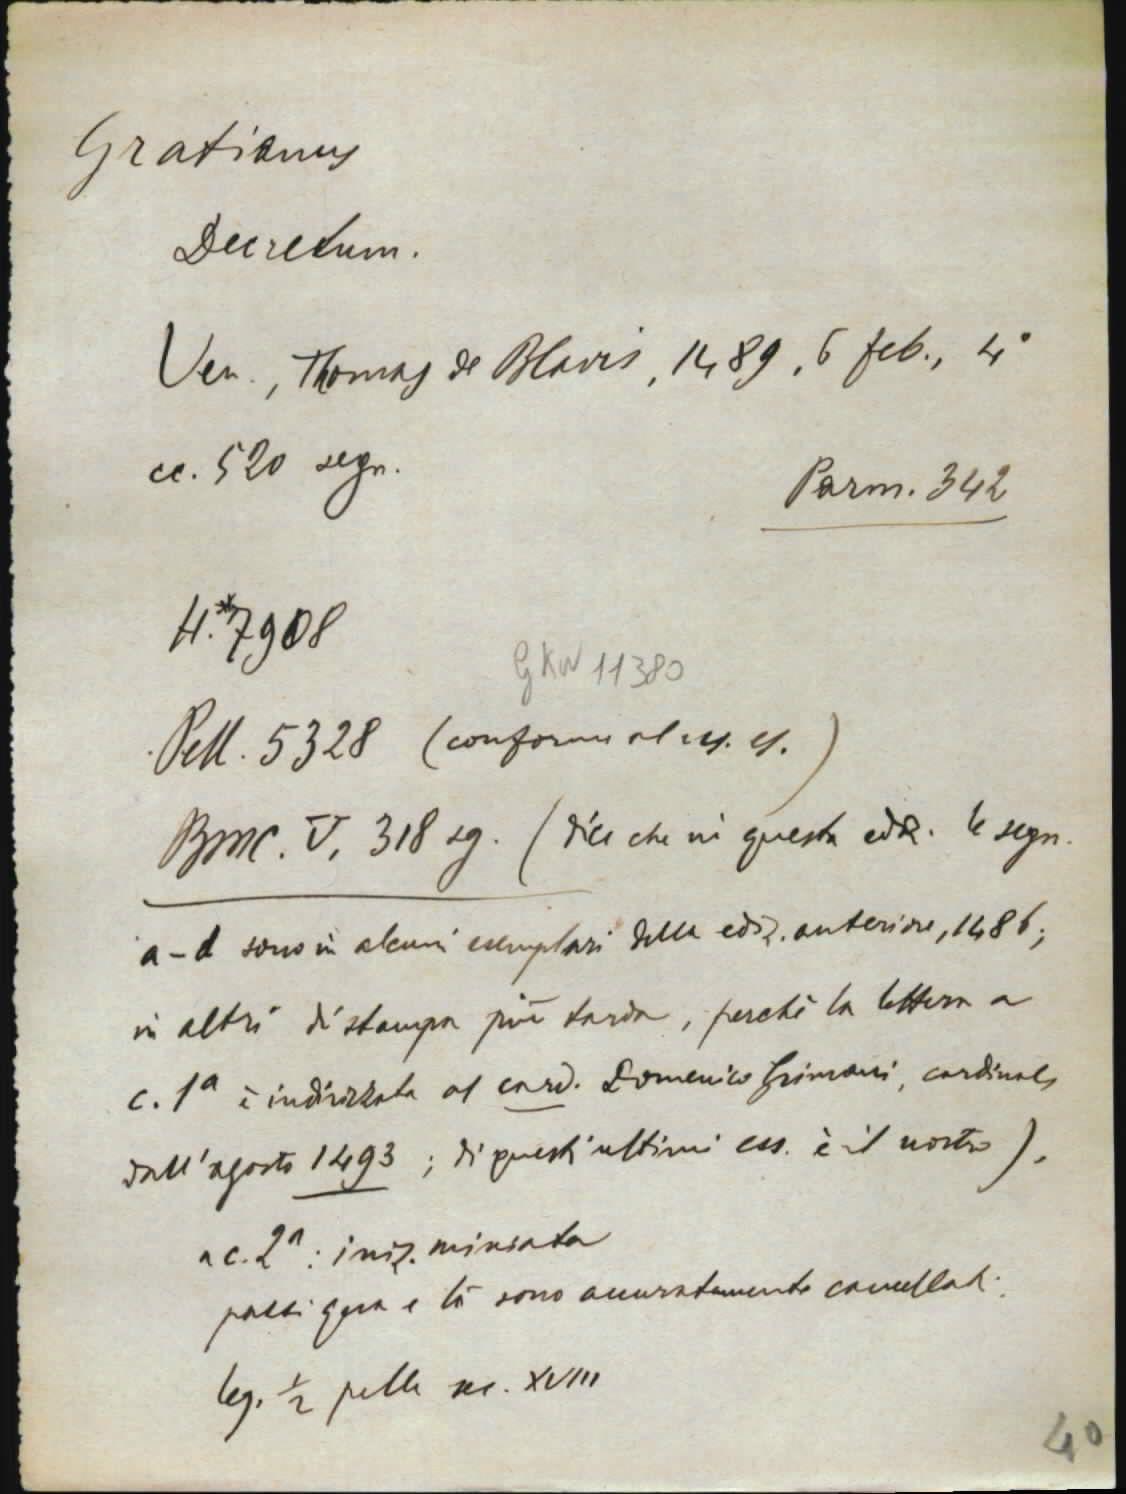 Gratianus
Decretum.
Ven., Thomas de Blavis, 1489, 6 feb., 4°
cc. 520 segn.
Parm. 342
H.*7908
GKW 11380
Pell. 5328 (conforme al ns. es.)
BMC. V, 318 sg. (dice che in questa ediz. le segn.
a-d sono in alcuni esemplari della ediz. anteriore, 1486;
in altri di stampa più tarda, perchè la lettera a
c. 1a è indirizzata al card. Domenico Grimani, cardinale
dall'agosto 1493; di questi ultimi ess. è il nostro).
a c. 2a: iniz. miniata
passi qua e là sono accuratamente cancellati.
leg. 1/2 pelle sec. XVIII
40